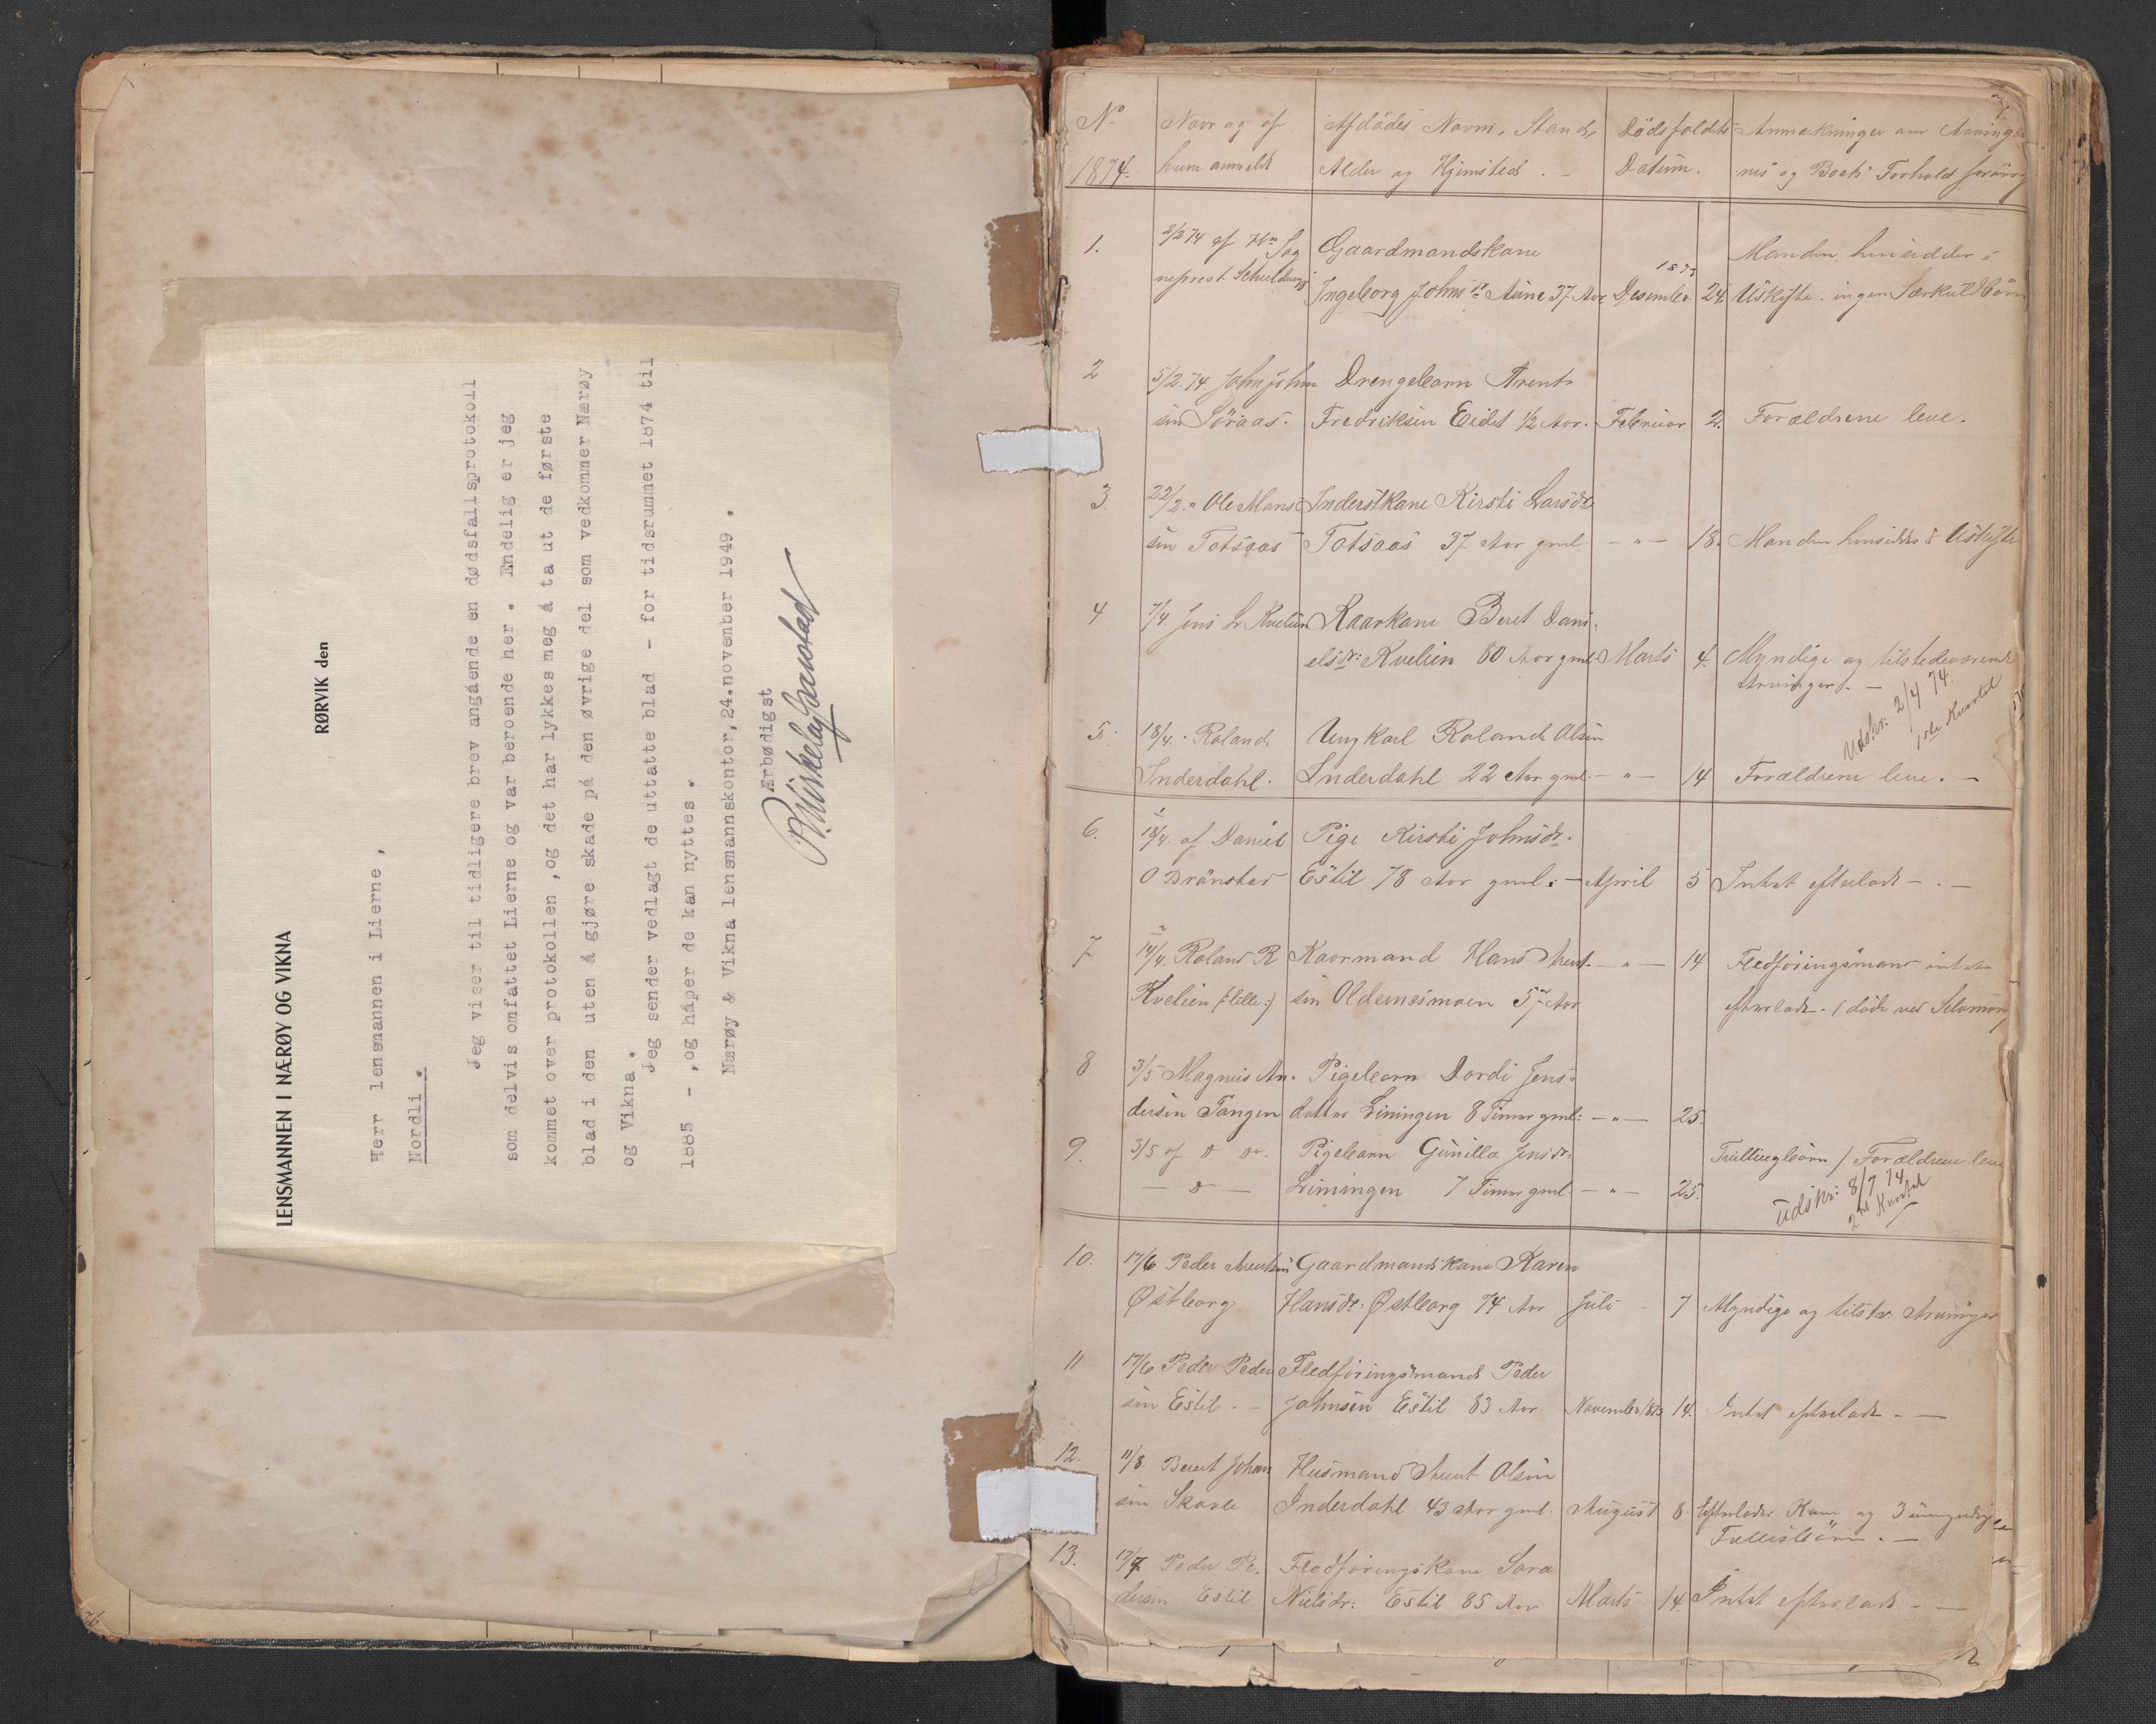 LENSMANNEN I NÆRØY OG VIKNA
RØRVIK den
Herr lensmannen i Lierne,
Nordli.
Jeg viser til tidligere brev angående en dødsfallsprotokoll
som delvis omfattet Lierne og var beroende her. Endelig er jeg
kommet over protokollen, og det har lykkes meg å ta ut de første
blad i den uten å gjøre skade på den øvrige del som vedkommer Nærøy
og Vikna.
Jeg sender vedlagt de uttatte blad - for tidsrummet 1874 til
1885 -, og håper de kan nyttes.
Nærøy & Vikna lensmannskontor, 24.november 1949.
Ærbødigst
No Naar og af Afdødes Navn, Stand, Dødsfaldets Anmærkninger om Arvinger
1874. hvem anmeldt Alder og Hjemsted. - Datum. nes og Boets Forhold forøvrig
1. 2/2 74 af Hr Sog Gaardmandskone Manden hensidder i
neprest Ingeborg Johnsdr Aune 37 Aar Desember 1873 24. Uskifte. ingen Særkuldbørn
2 5/2.74 John John Drengebarn Arent
sen Söraas. Fredriksen Eidet 1/2 Aar. Februar 2. Forældrene leve.
3 22/2 " Ole Mons Inderstkone Kirsti Larsdr
sen Totsaas Totsaas 37 Aar gml - " - 18. Manden hensidder i Uskifte
4 7/4 Jens L. Kvelien Kaarkone Beret Dani
elsdr: Kvelien 80 Aar gml Marts 4. Myndige og tilstedeværende
Arvinger. -
Udskr: 2/4 74.
1ste Kvartal
5. 18/4. Roland Ungkarl Roland Olsen
Inderdahl. Inderdahl 22 Aar gml. - " - 14 Forældrene leve. -
6. 18/4. af Daniel Pige Kirsti Johnsdr.
O Brönstad Estil 78 Aar gml: - April 5 Intet efterladt - . -
7 14/4. Roland R Kaarmand Hans Arent - " - 14 Fledföringsmand intet
Kvelien (:lille:) sen Oldernesmoen 57 Aar efterladt. (døde ved Selvmord)
8 3/5 Magnus An. Pigebarn Dordi Jens
dersen Tangen datter Limingen 8 Timer gml: - " - 25.
9. 3/5 af D Do. Pigebarn Gunilla Jensdr: Tvillingbörn / Forældrene leve
- D - Limingen 7 Timer gml. - " - 25.
Udskr: 8/7 74
2det Kvartal
10. 17/6 Peder Arentsen Gaardmandskone Karen
Østborg Hansdr: Østborg 74 Aar Juli - 7 Myndige og tilstv. Arvinger
11 17/6 Peder Peder Fledföringsmand Peder
sen Estil. - Johnsen Estil 83 Aar November 1873 14. Intet efterladt. -
12. 11/8. Berent Johan Husmand Arent Olsen
sen Skaale Inderdahl 43 Aar gml. August 8. Efterlader Kone og 3 umyndige
Fællesbörn. -
13. 17/7. Peder Pe. Fledföringskone Sara
dersen Estil Nielsdr: Estil 85 Aar Marts 14. Intet efterladt - -